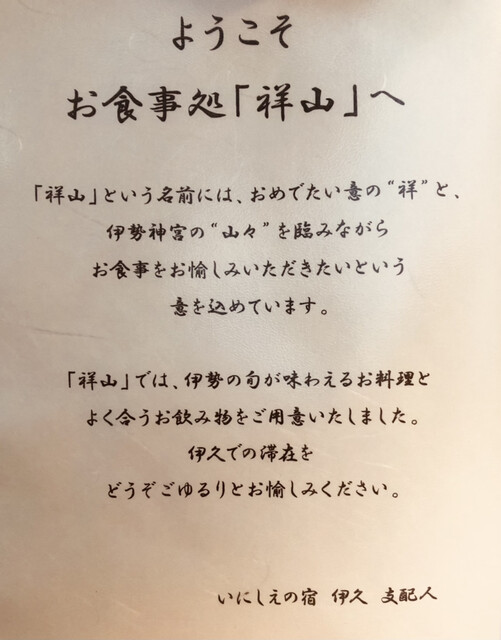 ようこそ
お食事処「祥山」へ
「祥山」という名前には、おめでたい意の“祥”と、
伊勢神宮の“山々”を臨みながら
お食事をお愉しみいただきたいという
意を込めています。
「祥山」では、伊勢の旬が味わえるお料理と
よく合うお飲み物をご用意いたしました。
伊久での滞在を
どうぞごゆるりとお愉しみください。
いにしえの宿 伊久 支配人